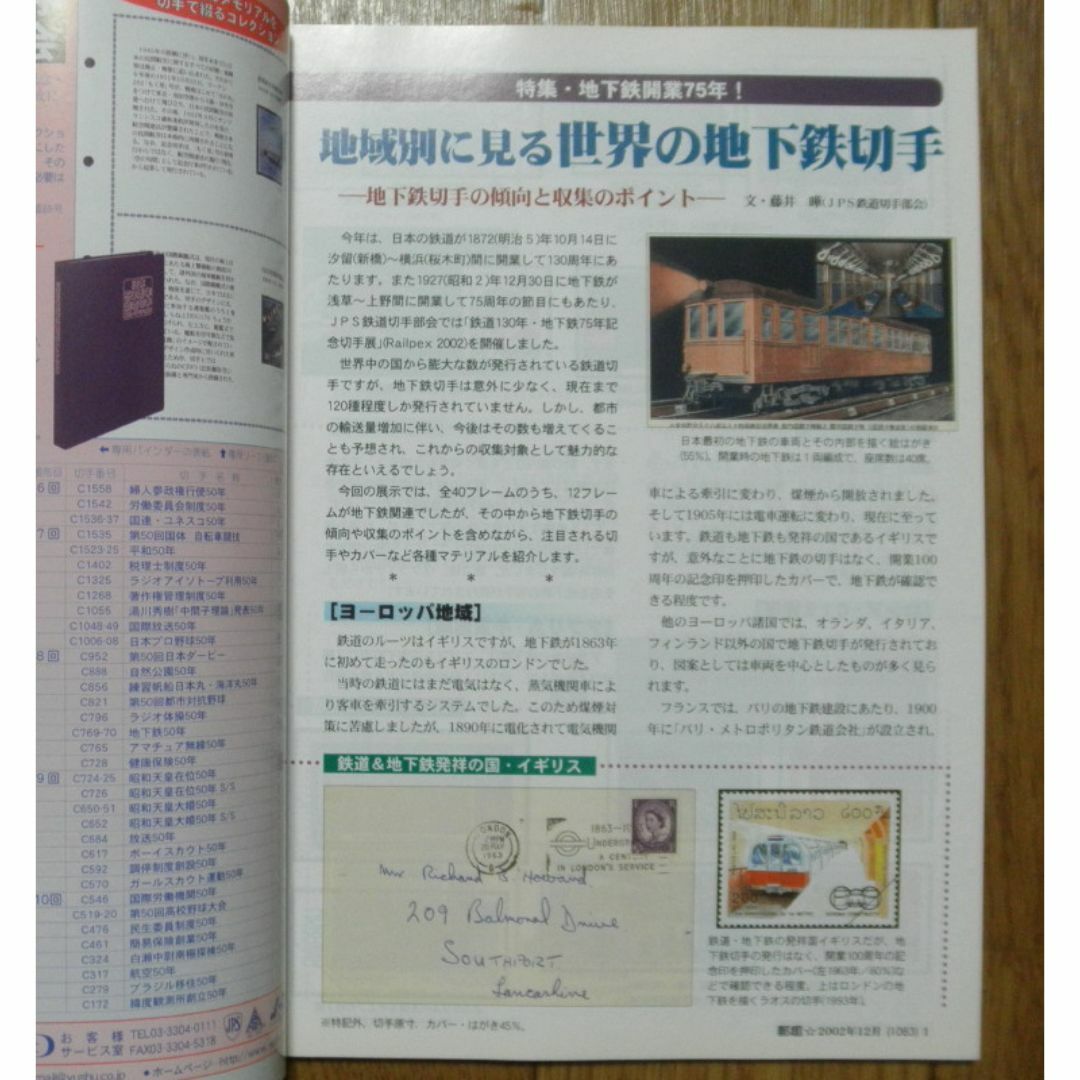 切手で綴るコレクション
←専用バインダーの表紙
切手番号 切手名称
6回 C1558 婦人参政権行使50年
C1542 労働委員会制度50年
C1536-37 国連・ユネスコ50年
7回 C1535 第50回国体 自転車競技
C1523-25 平和50年
C1402 税理士制度50年
C1325 ラジオアイソトープ利用50年
C1268 著作権管理制度50年
C1055 湯川秀樹「中間子理論」発表50年
C1048-49 国際放送50年
C1006-08 日本プロ野球50年
8回 C952 第50回日本ダービー
C888 自然公園50年
C856 練習帆船日本丸・海洋丸50年
C821 第50回都市対抗野球
C796 ラジオ体操50年
C769-70 地下鉄50年
C765 アマチュア無線50年
C728 健康保険50年
9回 C724-25 昭和天皇在位50年
C726 昭和天皇在位50年 S/S
C650-51 昭和天皇大婚50年
C652 昭和天皇大婚50年 S/S
C684 放送50年
C617 ボーイスカウト50年
C592 調停制度創設50年
C570 ガールスカウト運動50年
10回 C546 国際労働機関50年
C519-20 第50回高校野球大会
C476 民生委員制度50年
C461 簡易保険創業50年
C324 白瀬中尉南極探検50年
C317 航空50年
C279 ブラジル移住50年
C172 緯度観測所創立50年
お客様 TEL03-3304-0111
サービス室 FAX03-3304-5318
JPS
●ホームページ
特集・地下鉄開業75年！
地域別に見る世界の地下鉄切手
―地下鉄切手の傾向と収集のポイント―
文・藤井 曄(JPS鉄道切手部会)
今年は、日本の鉄道が1872(明治5)年10月14日に
汐留(新橋)～横浜(桜木町)間に開業して130周年にあ
たります。また1927(昭和2)年12月30日に地下鉄が
浅草～上野間に開業して75周年の節目にもあたり、
JPS鉄道切手部会では「鉄道130年・地下鉄75年記
念切手展」(Railpex 2002)を開催しました。
世界中の国から膨大な数が発行されている鉄道切
手ですが、地下鉄切手は意外に少なく、現在まで
120種程度しか発行されていません。しかし、都市
の輸送量増加に伴い、今後はその数も増えてくるこ
とも予想され、これからの収集対象として魅力的な
存在といえるでしょう。
今回の展示では、全40フレームのうち、12フレー
ムが地下鉄関連でしたが、その中から地下鉄切手の
傾向や収集のポイントを含めながら、注目される切
手やカバーなど各種マテリアルを紹介します。
＊ ＊ ＊
［ヨーロッパ地域］
鉄道のルーツはイギリスですが、地下鉄が1863年
に初めて走ったのもイギリスのロンドンでした。
当時の鉄道にはまだ電気はなく、蒸気機関車によ
り客車を牽引するシステムでした。このため煤煙対
策に苦慮しましたが、1890年に電化されて電気機関
日本最初の地下鉄の車両とその内部を描く絵はがき
(55%)。開業時の地下鉄は1両編成で、座席数は40席。
車による牽引に変わり、煤煙から開放されました。
そして1905年には電車運転に変わり、現在に至って
います。鉄道も地下鉄も発祥の国であるイギリスで
すが、意外なことに地下鉄の切手はなく、開業100
周年の記念印を押印したカバーで、地下鉄が確認で
きる程度です。
他のヨーロッパ諸国では、オランダ、イタリア、
フィンランド以外の国で地下鉄切手が発行されてお
り、図案としては車両を中心としたものが多く見ら
れます。
フランスでは、パリの地下鉄建設にあたり、1900
年に「パリ・メトロポリタン鉄道会社」が設立され、
鉄道＆地下鉄発祥の国・イギリス
1863
UNDERGR
A CENTU
IN LONDON'S SERVICE
Mr Richard S. Howard
209 Balmoral Drive
SOUTHPORT
Lancashire
ໄປສະນີລາວ
鉄道・地下鉄の発祥国イギリスだが、地
下鉄切手の発行はなく、開業100周年の記
念印を押印したカバー(左1963年/60%)な
どで確認できる程度。上はロンドンの地
下鉄を描くラオスの切手(1993年)。
※特記外、切手原寸、カバー・はがき45%。
郵趣☆2002年12月 (1083) 1